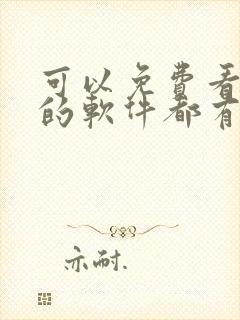 可以免費看
的軟件都有
亦耐.